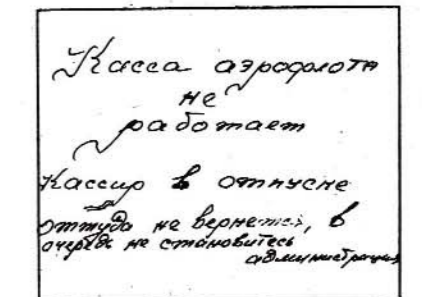 Касса аэрофлота
не
работает
Кассир в отпуске
оттуда не вернется, в
очередь не становитесь
администрация